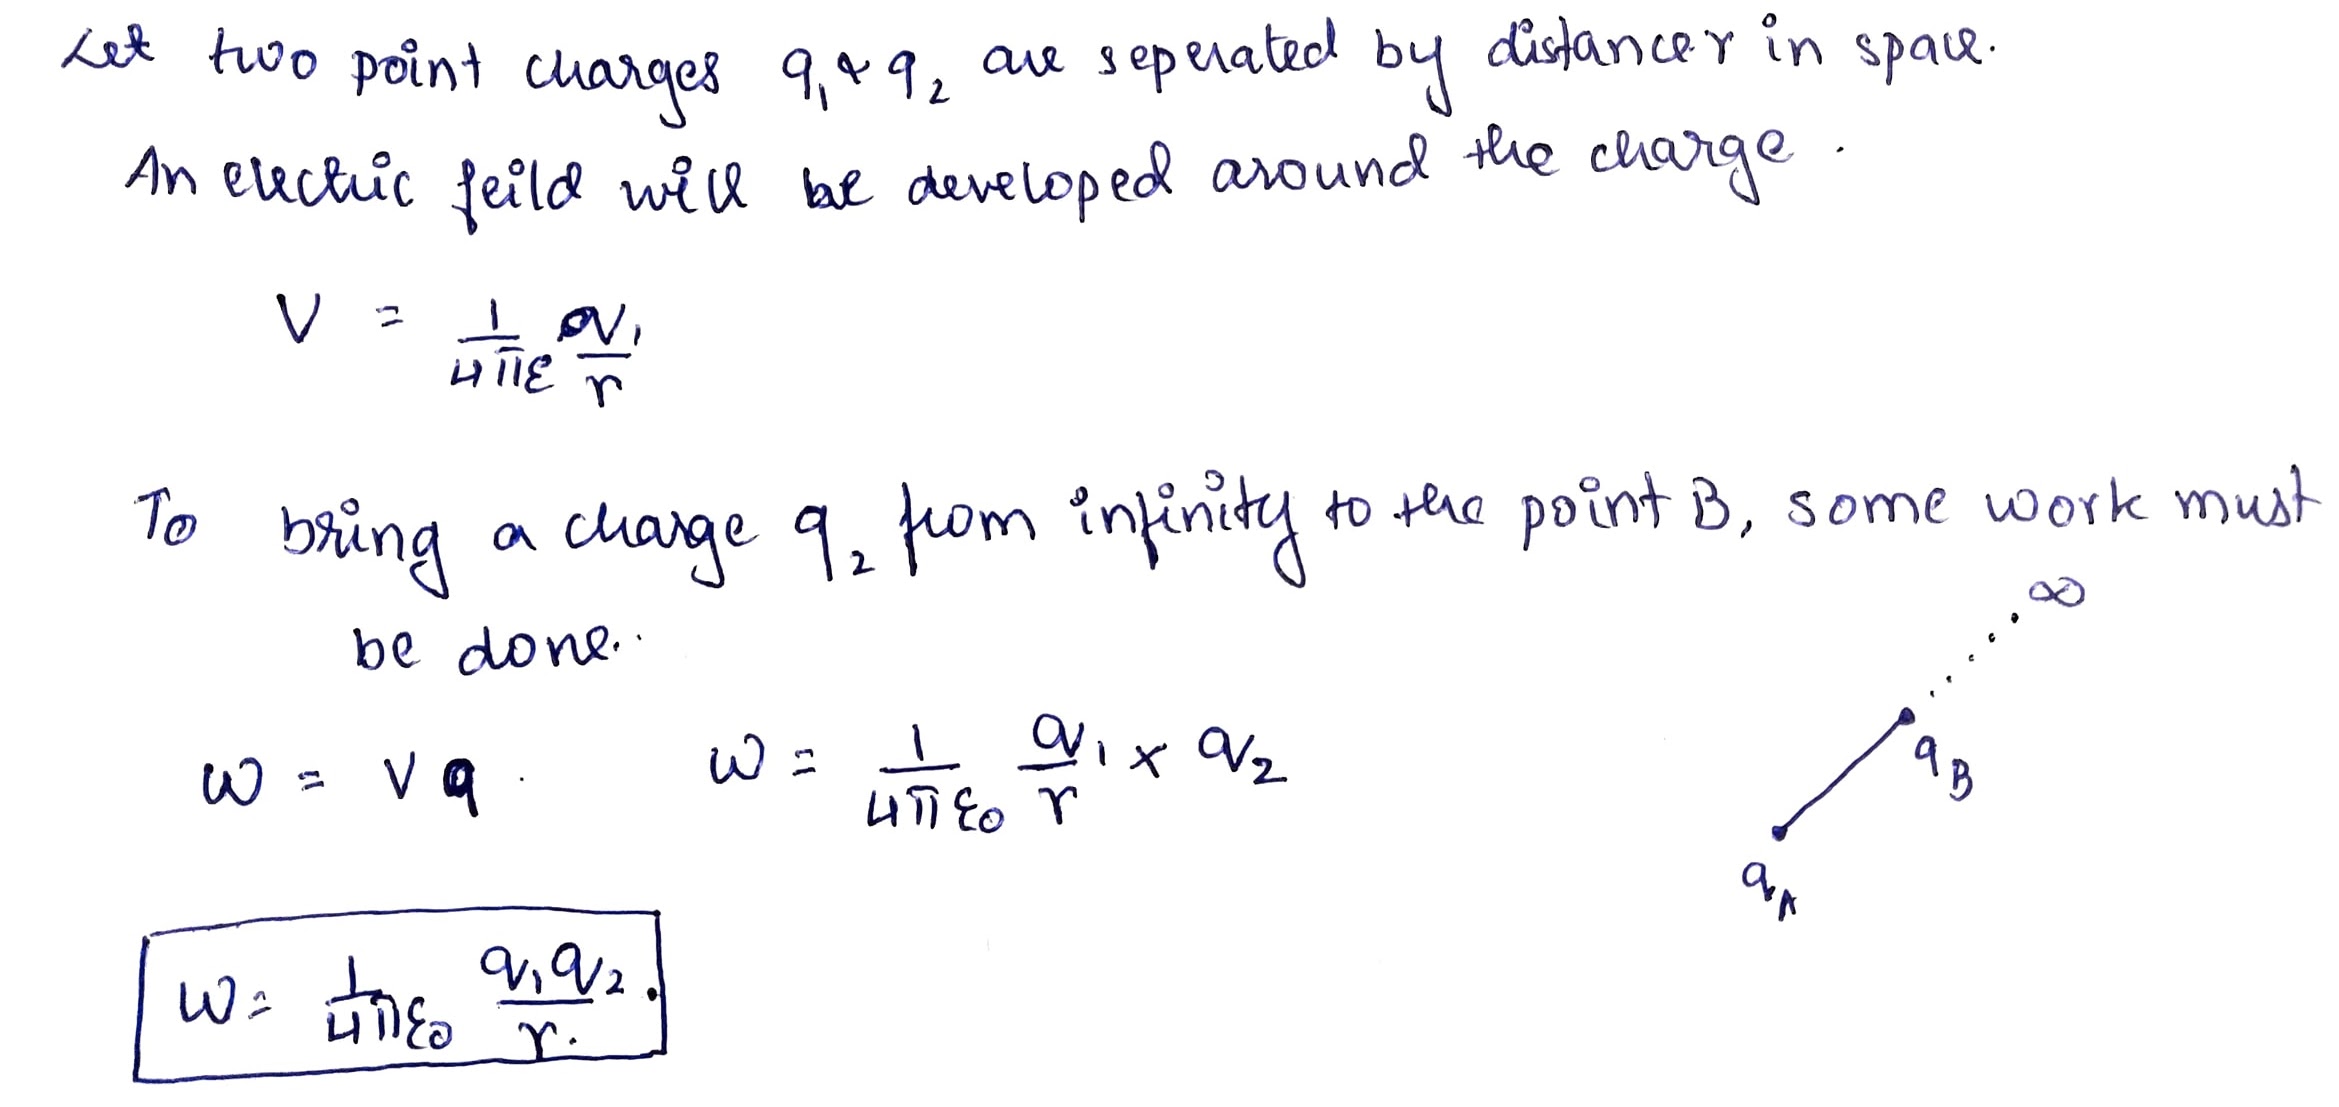 Let two point charges q₁ & q₂ are seperated by distance r in space.
An electric feild will be developed around the charge.
V = 1/4πε q₁/r
To bring a charge q₂ from infinity to the point B, some work must
be done.
∞
W = Vq. W = 1/4πε₀ q₁/r × q₂
q_B
q_A
W = 1/4πε₀ q₁q₂/r.